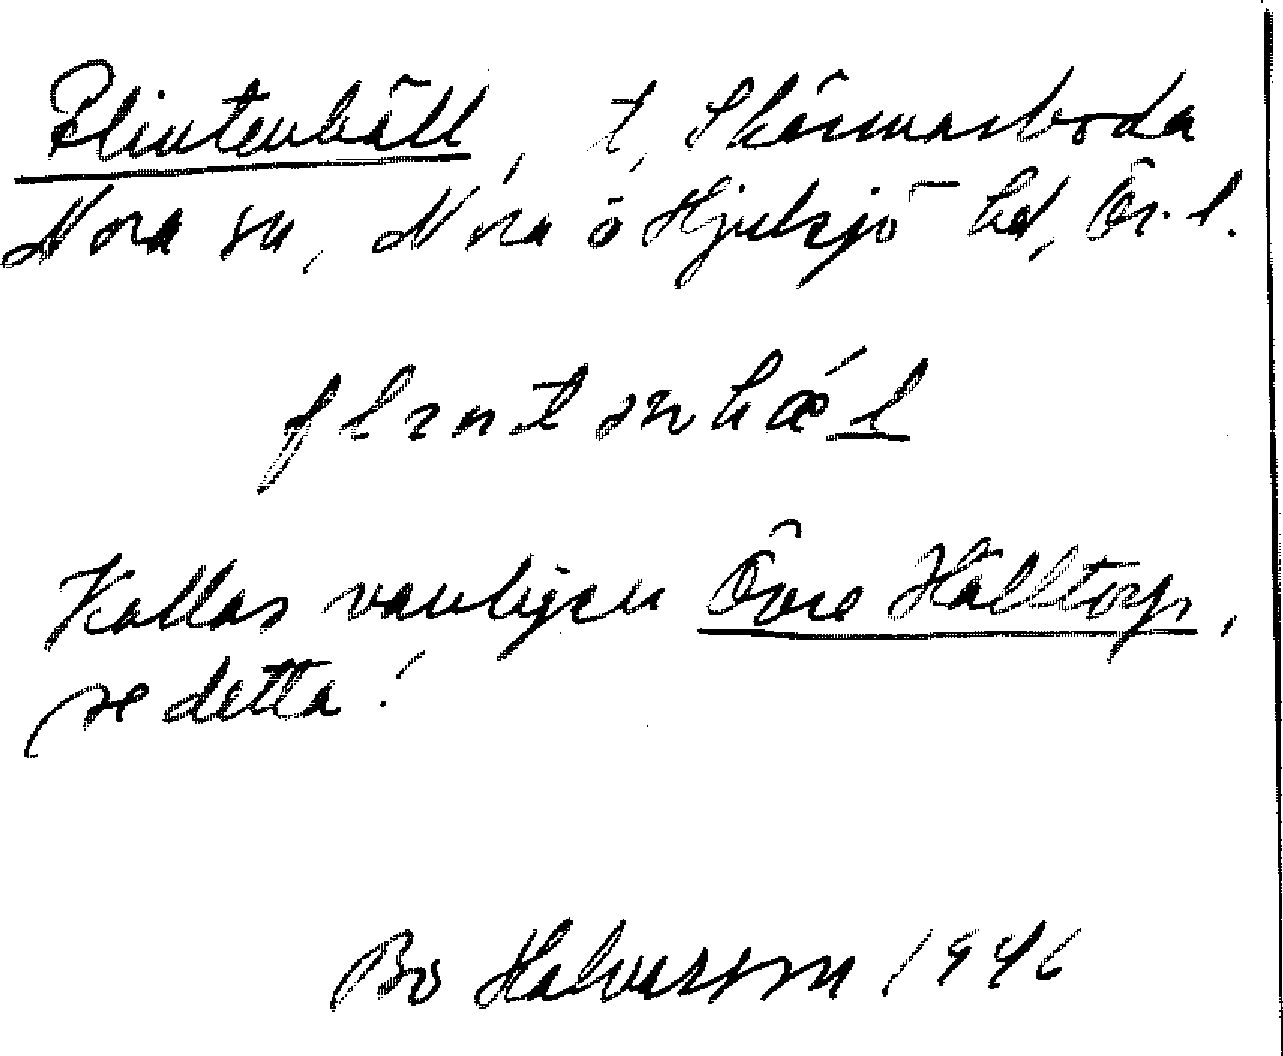 Flintenhäll, t. Skärmarboda
Nora sn, Nora o Hjulsjö hd, Ör. l.
flintenhäl
Kallas vanligen Övre Hälltorp,
se detta!
Bo Halvarsson 1946